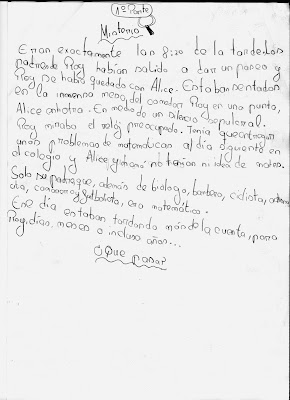 1ª Parte
Misterio
Eran exactamente las 8:20 de la tarde. Los
padres de Roy habían salido a dar un paseo y
Roy se había quedado con Alice. Estaban sentados
en la inmensa mesa del comedor Roy en una punta,
Alice en otra. En medio de un silencio sepulcral.
Roy miraba el reloj preocupado. Tenía que entregar
unos problemas de matemáticas al día siguiente en
el colegio y Alice y no tenían ni idea de mates.
Solo su padre que, además de biólogo, barbero, ciclista,
cocinero y futbolista, era matemático.
Ese día estaban tardando más de la cuenta, para
Roy, días, meses o incluso años...
¿Que pasa?